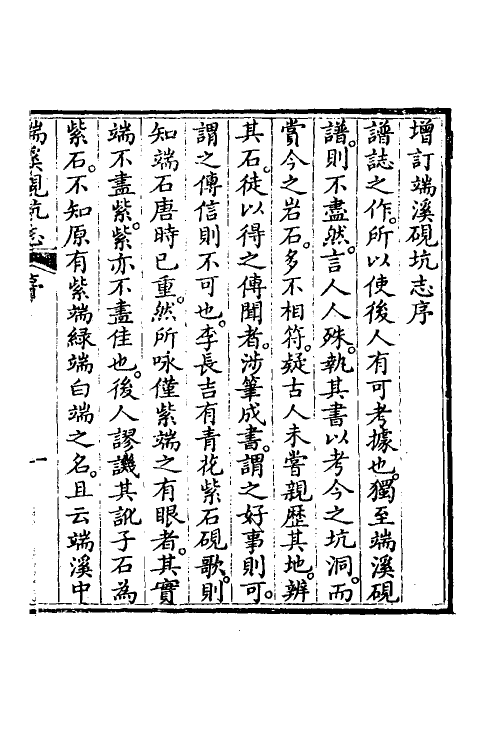 增訂端溪硯坑志序
譜誌之作。所以使後人有可考據也。獨至端溪硯
譜。則不盡然。言人人殊。執其書以考今之坑洞。而
賞今之岩石。多不相符。疑古人未嘗親歷其地。辨
其石。徒以得之傳聞者。涉筆成書。謂之好事則可。
謂之傳信則不可也。李長吉有青花紫石硯歌。則
知端石唐時已重。然所咏僅紫端之有眼者。其實
端不盡紫。紫亦不盡佳也。後人謬譏其訛子石為
紫石。不知原有紫端綠端白端之名。且云端溪中
端溪硯坑志 序 一